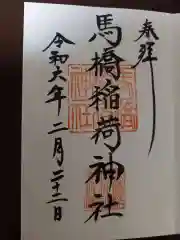 奉拝
馬橋稲荷神社
令和六年二月二十二日